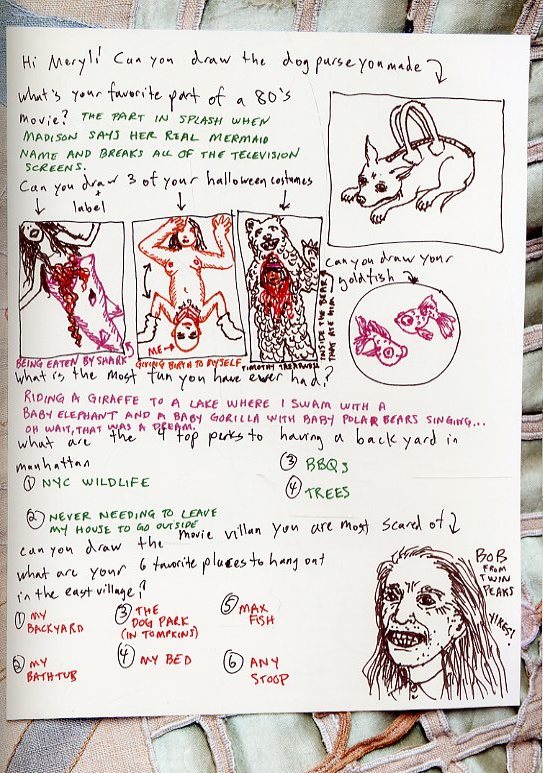 Hi Meryl! Can you draw the dog purse you made
what's your favorite part of a 80's
movie? THE PART IN SPLASH WHEN
MADISON SAYS HER REAL MERMAID
NAME AND BREAKS ALL OF THE TELEVISION
SCREENS.
Can you draw + label 3 of your halloween costumes
BEING EATEN BY SHARK
ME→
GIVING BIRTH TO MYSELF
TIMOTHY TREADWELL
INSIDE THE BEAR
THAT ATE HIM
can you draw your
goldfish
what is the most fun you have ever had?
RIDING A GIRAFFE TO A LAKE WHERE I SWAM WITH A
BABY ELEPHANT AND A BABY GORILLA WITH BABY POLAR BEARS SINGING...
OH WAIT, THAT WAS A DREAM.
what are the 4 top perks to having a back yard in
manhattan
① NYC WILDLIFE
② NEVER NEEDING TO LEAVE
MY HOUSE TO GO OUTSIDE
③ BBQs
④ TREES
can you draw the movie villan you are most scared of
BOB
FROM
TWIN
PEAKS
YIKES!
what are your 6 favorite places to hang out
in the east village?
① MY
BACKYARD
② MY
BATHTUB
③ THE
DOG PARK
(IN TOMPKINS)
④ MY BED
⑤ MAX
FISH
⑥ ANY
STOOP